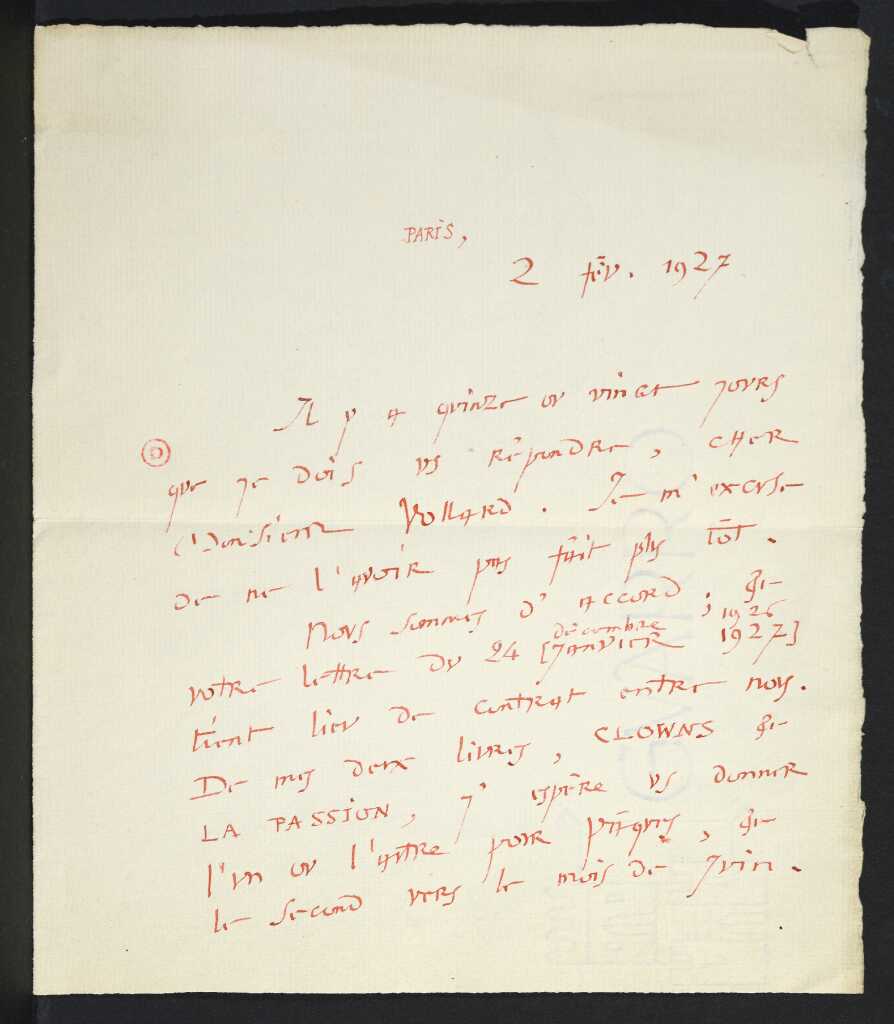 PARIS,
2 fév. 1927
Il y a quinze ou vingt jours
que je dois vs répondre, cher
Monsieur Vollard. Je m'excuse
de ne l'avoir pas fait plus tôt.
Nous sommes d'accord, &
décembre 1926
votre lettre du 24 [Janvier 1927]
tient lieu de contrat entre nous.
De mes deux livres, CLOWNS &
LA PASSION, j'espère vs donner
l'un ou l'autre pour Pâques, &
le second vers le mois de Juin.